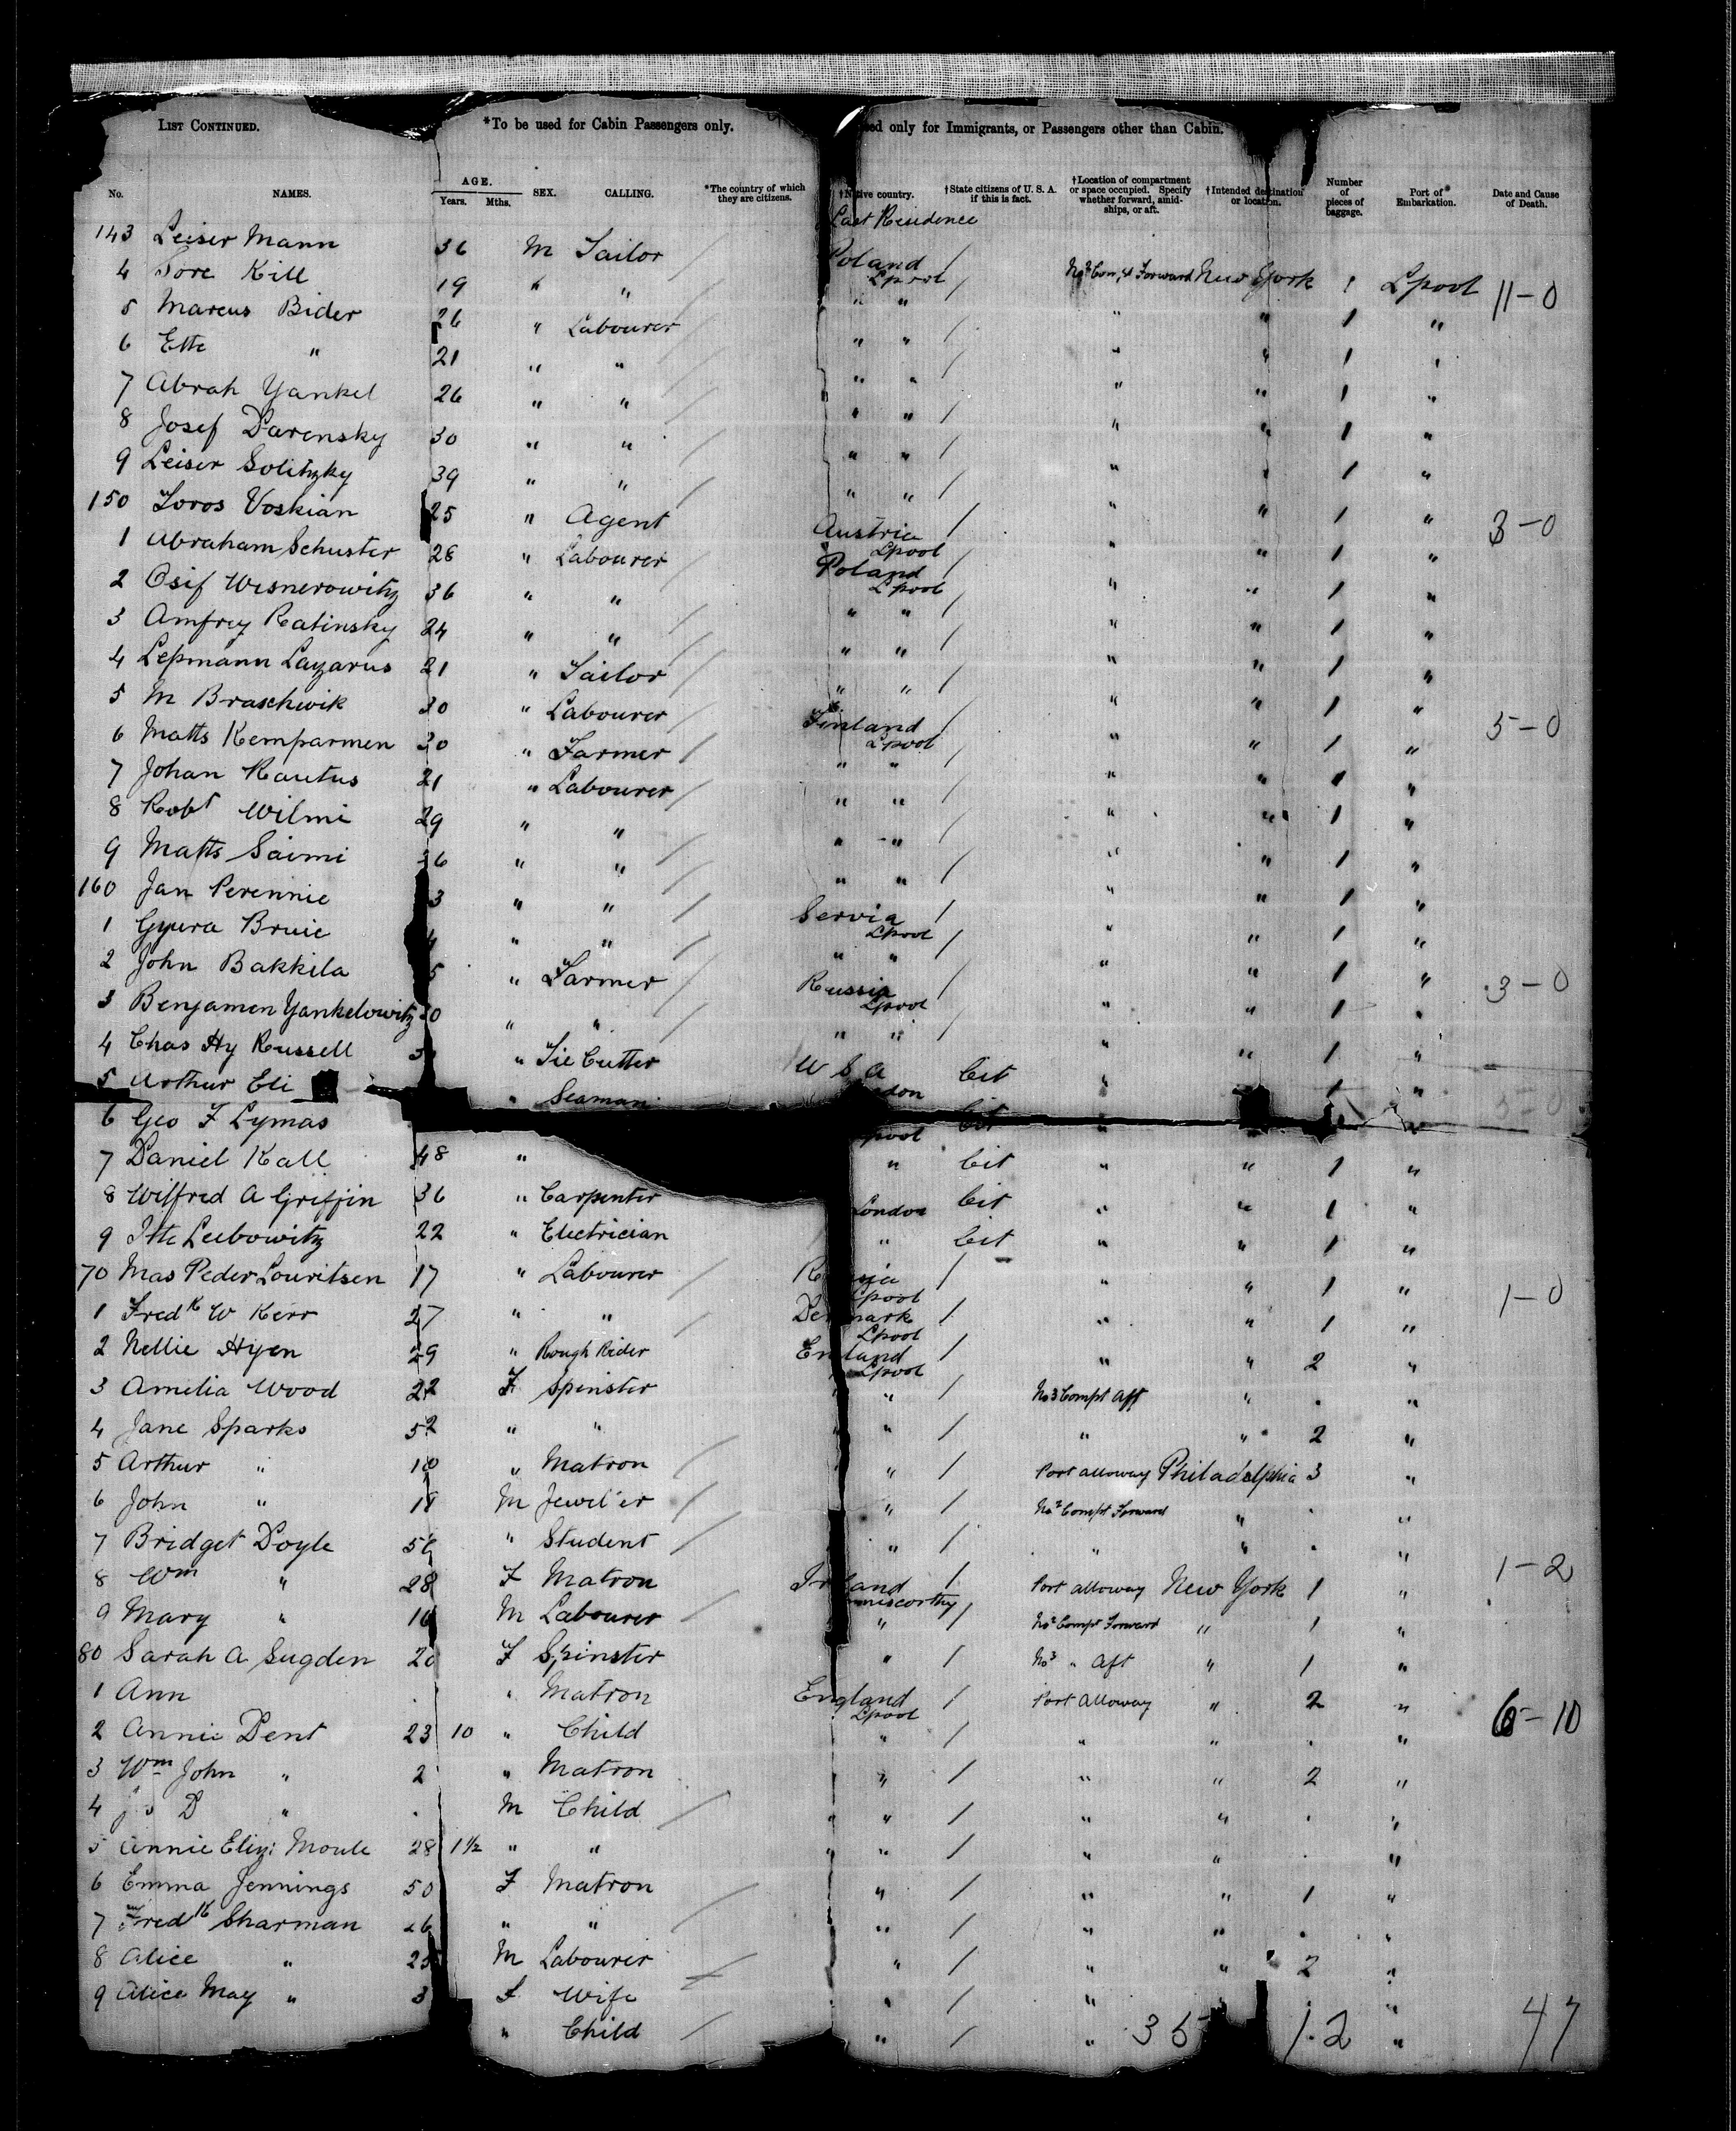 LIST CONTINUED. *To be used for Cabin Passengers only. ed only for Immigrants, or Passengers other than Cabin.
No. NAMES. AGE. Years. Mths. SEX. CALLING. *The country of which they are citizens. †Native country. †State citizens of U. S. A. if this is fact. †Location of compartment or space occupied. Specify whether forward, amidships, or aft. †Intended destination or location. Number of pieces of baggage. Port of Embarkation. Date and Cause of Death.
Last Residence
143 Leiser Mann 36 M Tailor / Poland Lpool / Forward New York 1 Lpool 11-0
4 Sore Kill 19 " " / " " / " " 1 "
5 Marcus Bider 26 " Labourer / " " / " " 1 "
6 Ette " 21 " " / " " / " " 1 "
7 Abrah Yankel 26 " " / " " / " " 1 "
8 Josef Darensky 30 " " / " " / " " 1 "
9 Leiser Solitzky 39 " " / " " / " " 1 "
150 Toros Voskian 25 " Agent Austria Lpool / " " 1 " 3-0
1 Abraham Schuster 28 " Labourer Poland Lpool / " " 1 "
2 Osif Wisnerowitz 36 " " / " " / " " 1 "
3 Amfrey Ratinsky 24 " " / " " / " " 1 "
4 Lepmann Lazarus 21 " Tailor / " " / " " 1 "
5 M Braschwik 30 " Labourer / Finland Lpool / " " 1 " 5-0
6 Matts Kemparmen 30 " Farmer / " " / " " 1 "
7 Johan Rautus 21 " Labourer / " " / " " 1 "
8 Robt Wilmi 29 " " / " " / " " 1 "
9 Matts Saimi 36 " " / " " / " " 1 "
160 Jan Perennie 3 " " / Servia Lpool / " " 1 "
1 Gyura Bruic " " / " " / " " 1 "
2 John Bakkila 5 " Farmer / Russia Lpool / " " 1 " 3-0
3 Benjamen Yankelowitz 0 " " / " " / " " 1 "
4 Chas Hy Russell " Tie Cutter U S A Cit " " 1 "
5 Arthur Eli " Seaman Cit " 1 " 5-0
6 Geo F Lymas
7 Daniel Kall 48 " " Cit " " 1 "
8 Wilfred A Griffin 36 " Carpenter London Cit " " 1 "
9 Itte Leibowitz 22 " Electrician " Cit " " 1 "
70 Mas Peder Louritsen 17 " Labourer / Lpool / " " 1 " 1-0
1 Fredk W Kerr 27 " " / Denmark Lpool / " " 1 "
2 Nellie Hyen 29 " Rough Rider England Lpool / " " 2 "
3 Amelia Wood 22 F Spinster " / No3 Compt Aft " . "
4 Jane Sparks 52 " " " / " " 2 "
5 Arthur " 10 " Matron / " / Port alloway Philadelphia 3 "
6 John " 18 M Jeweller / " / No2 Compt Forward " . "
7 Bridget Doyle 56 " Student / " / " " . "
8 Wm " 28 F Matron Ireland / Port alloway New York 1 " 1-2
9 Mary " 16 M Labourer / " / No2 Compt Forward " 1 "
80 Sarah A Sugden 20 F Spinster " / No3 " Aft " 1 "
1 Ann . " Matron England Lpool / Port Alloway " 2 " 6-10
2 Annie Dent 23 10 " Child " / " " . "
3 Wm John " 2 " Matron " / " " 2 "
4 D " . M Child / " / " " . "
5 Annie Eliz: Moule 28 1½ " " " / " " . "
6 Emma Jennings 50 F Matron / " / " " 1 "
7 Fredk Sharman 26 " " " / " " . "
8 Alice " 25 M Labourer " / " " 2 "
9 Alice May " 3 F Wife " / " " "
" Child / " / " 35 12 " 47